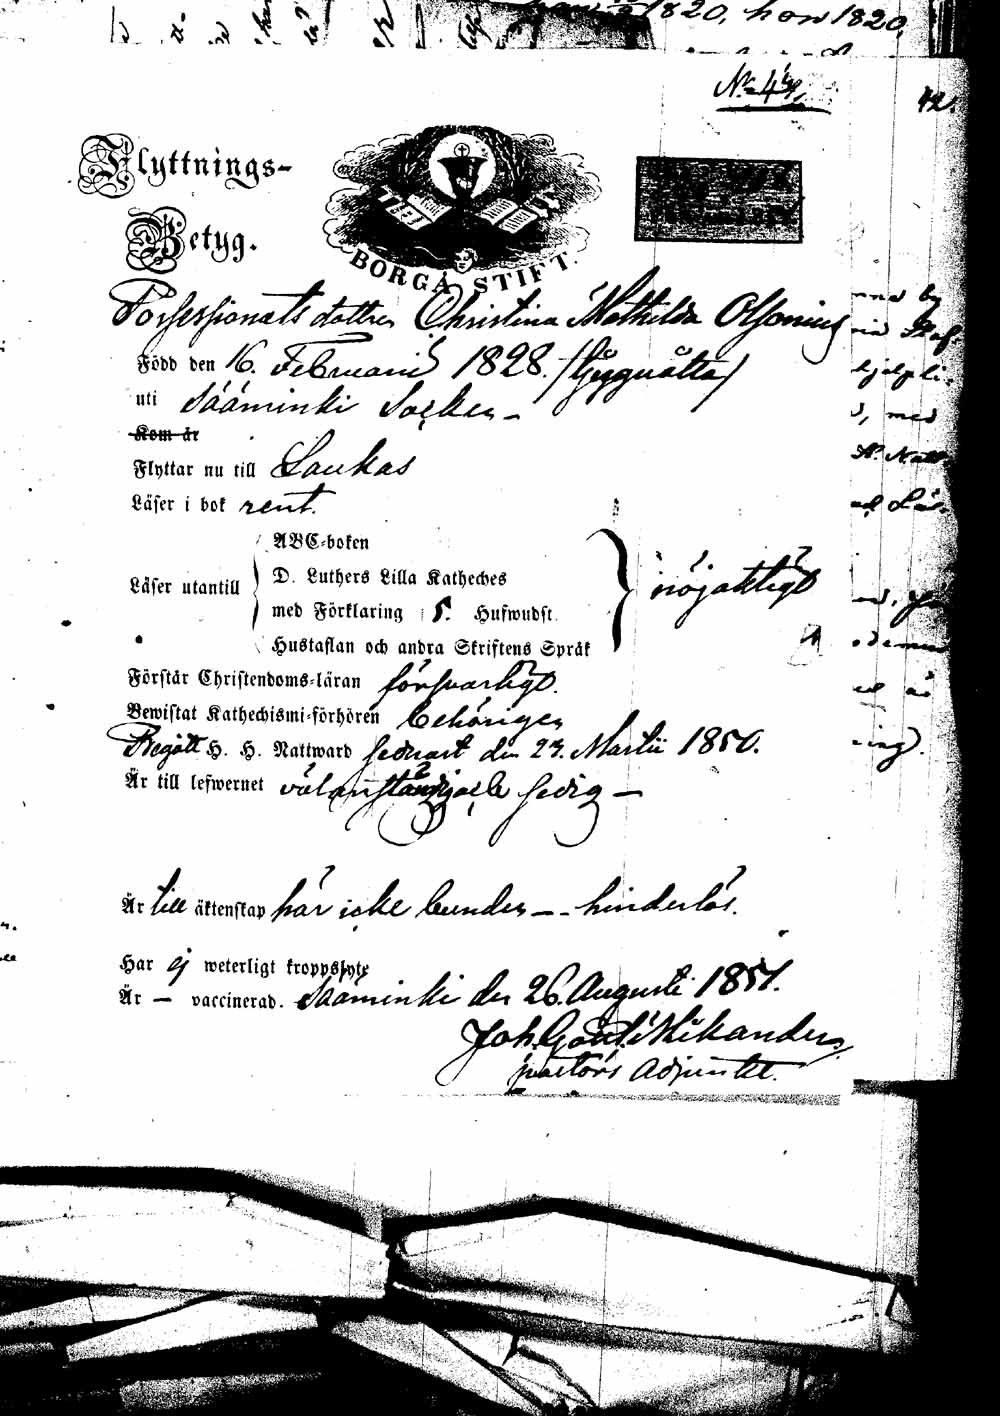 1820, hon 1820,
No 44,
42.
Flyttnings-
Betyg.
BORGÅ STIFT.
dotter Christina Mathilda
Född den 16. Februarii 1828. (tjuguåtta)
uti Sääminki Socken -
Kom år
Flyttar nu till Laukas
Läser i bok rent.
Läser utantill
ABC-boken
D. Luthers Lilla Katheches
med Förklaring 5. Hufwudst.
Hustaflan och andra Skriftens Språk
nöjaktligt
Förstår Christendoms-läran försvarligt.
Bewistat Kathechismi-förhören behörigen
Begått H. H. Nattward senast den 23. Martii 1850.
Är till lefwernet välanständig och sedig -
Är till äktenskap här icke bunden - - hinderlös.
Har ej weterligt kroppslyte
Är - vaccinerad. Sääminki den 26. Augusti 1851.
Joh. Gottl. Wikander,
pastors Adjunkt.